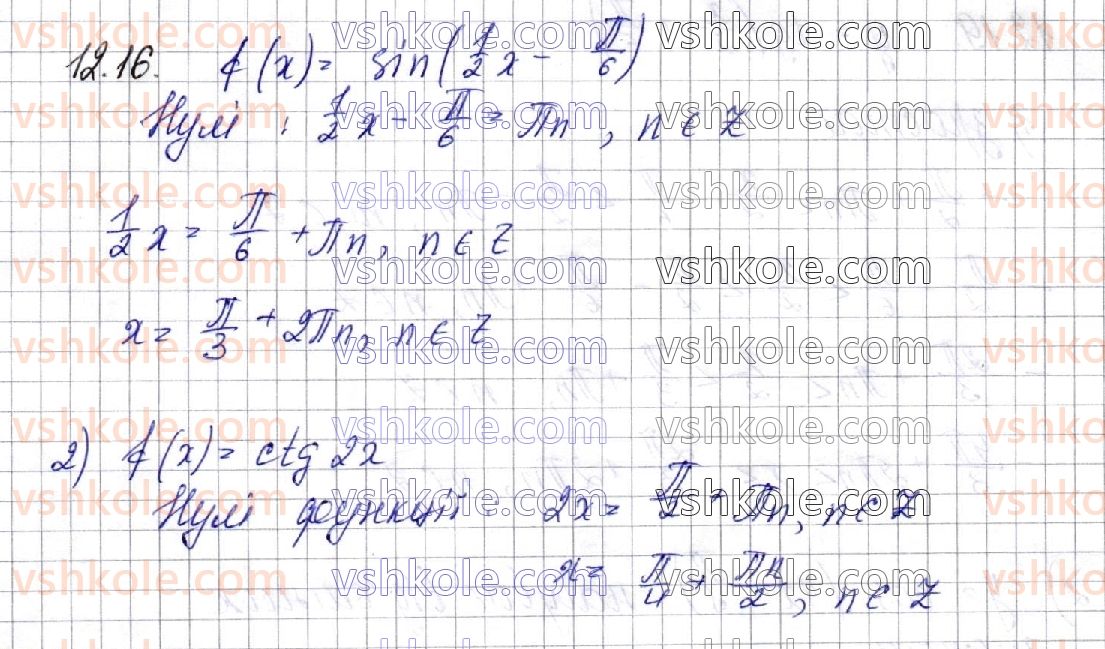 12.16. f(x) = sin(1/2 x - П/6)
Нулі: 1/2 x - П/6 = Пn, n ∈ Z
1/2 x = П/6 + Пn, n ∈ Z
x = П/3 + 2Пn, n ∈ Z
2) f(x) = ctg 2x
Нулі функції: 2x = П/2 + Пn, n ∈ Z
x = П/4 + Пn/2, n ∈ Z
vshkole.com